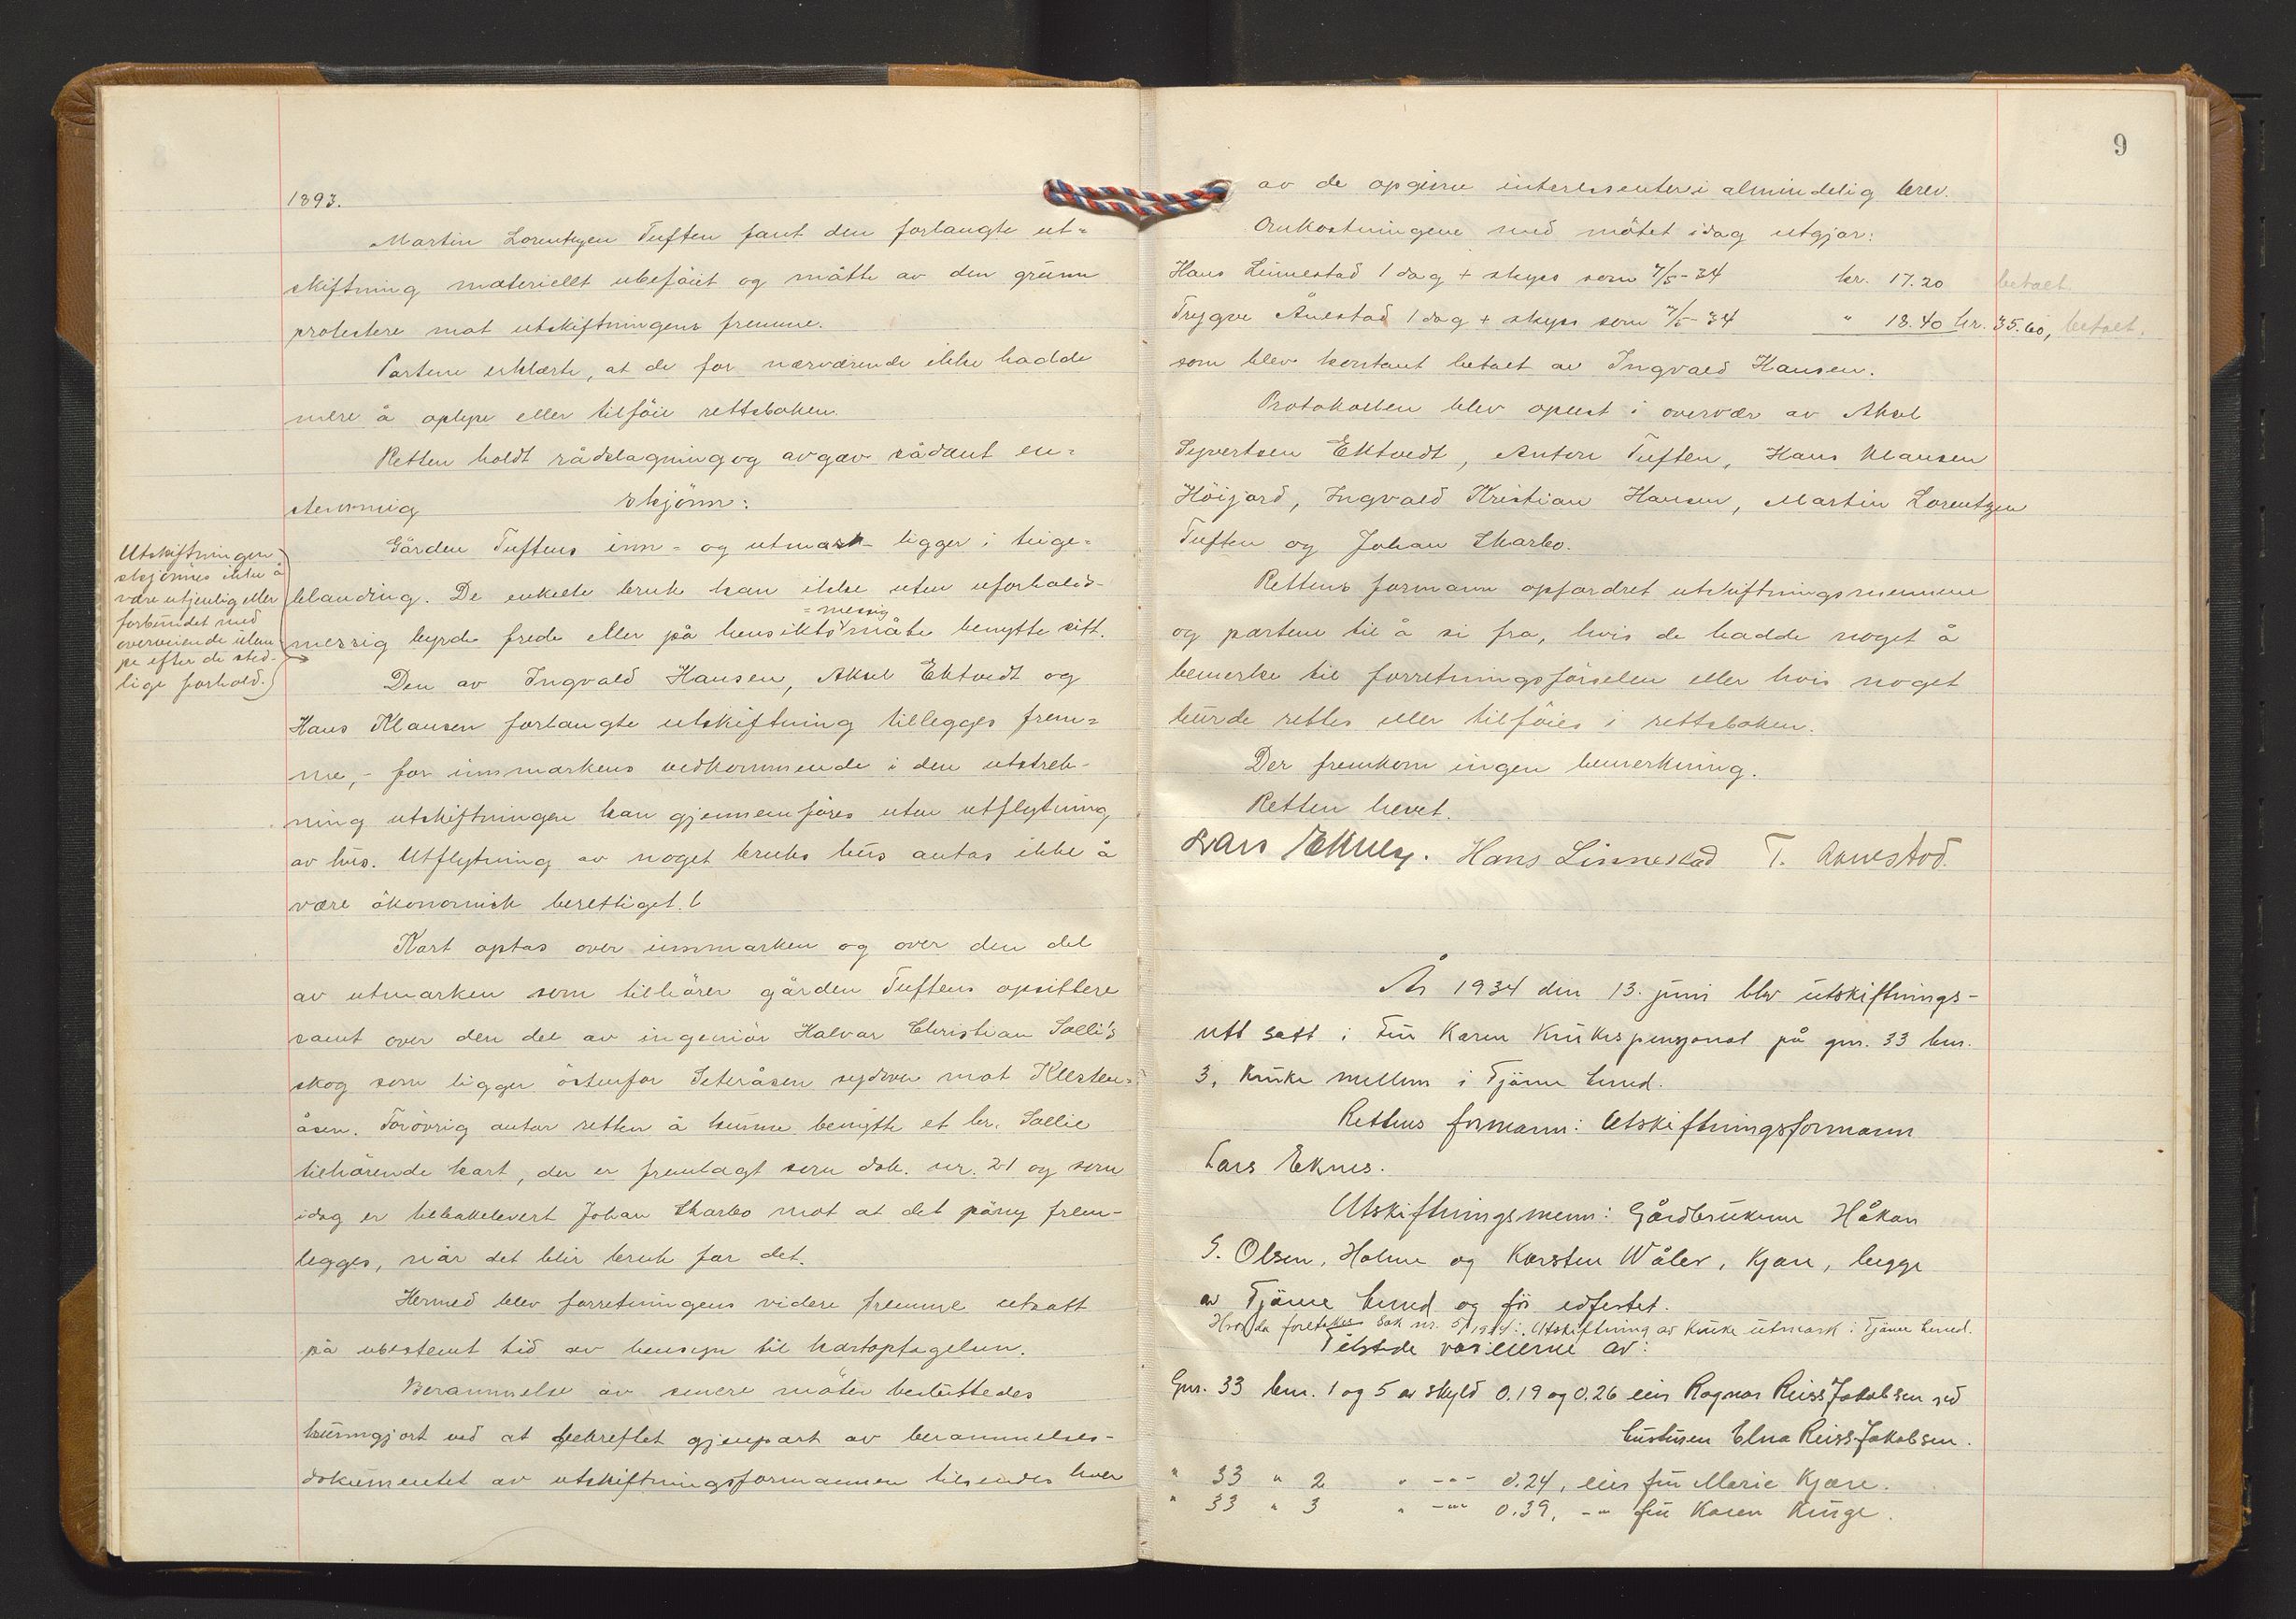 1893.
Martin Lorentzen Tuften fant den forlangte ut=
skiftning materiellt ubeföiet og måtte av den grunn
protestere mot utskiftningens fremme.
Partene erklærte, at de for nærværende ikke hadde
mere å oplyse eller tilföie rettsboken.
Retten holdt rådslagning og avgav sådant en=
stemmig skjönn:
Gården Tuftens inn- og utmark ligger i teige=
blanding. De enkelte bruk kan ikke uten uforholds-
messig byrde frede eller på hensikts=messig måte benytte sitt.
Utskiftningen
skjönnes ikke å
være utjenlig eller
forbundet med
overveiende ulem-
pe efter de sted-
lige forhold.
Den av Ingvald Hansen, Aksel Ektvedt og
Hans Klausen forlangte utskiftning tillegges frem=
me,- for innmarkens vedkommende i den utstrek-
ning utskiftningen kan gjennemföres uten utflytning
av hus. Utflytning av noget bruks hus antas ikke å
være ökonomisk berettiget.
Kart optas over innmarken og over den del
av utmarken som tilhörer gården Tuftens opsittere
samt over den del av ingeniör Halvar Christian Sølli's
skog som ligger östenfor Seteråsen sydover mot
åsen. Forövrig antar retten å kunne benytte et hr. Sollie
tilhörende kart, der er fremlagt som dok. nr. 21 og som
idag er tilbakelevert Johan Skarbo mot at det påny frem-
legges, når det blir bruk for det.
Hermed blev forretningens videre fremme utsatt
på ubestemt tid av hensyn til kartoptagelsen.
Berammelse av senere möter besluttedes
kunngjort ved at bekreftet gjenpart av berammelses-
dokumentet av utskiftningsformannen tilsendes hver
9
av de opgivne interessenter i almindelig brev.
Omkostningene med mötet idag utgjör:
Hans Linnestad 1 dag + skyss som 7/5-34 kr. 17.20 betalt.
Trygve Ånestad 1 dag + skyss som 7/5-34 " 18.40 kr. 35.60, betalt.
som blev kontant betalt av Ingvald Hansen.
Protokollen blev oplest i overvær av Aksel
Syvertsen Ektvedt, Anton Tuften, Hans Klausen
Höijord, Ingvald Kristian Hansen, Martin Lorentzen
Tuften og Johan Skarbo.
Rettens formann opfordret utskiftningsmennene
og partene til å si fra, hvis de hadde noget å
bemerke til forretningsförselen eller hvis noget
burde rettes eller tilföies i rettsboken.
Der fremkom ingen bemerkning.
Retten hevet.
Lars Eknes. Hans Linnestad T. Aanestad.
År 1934 den 13. juni blev utskiftnings-
rett satt i fru Karen Krukes pensjonat på gnr. 33 bnr.
3, Kruke mellem i Tjöme herred.
Rettens formann: Utskiftningsformann
Lars Eknes.
Utskiftningsmenn: Gårdbrukerne Håkon
G. Olsen, Holme og Karsten Wåler, Kjære, begge
av Tjöme herred og för edfestet.
Hvor da foretokes Sak nr. 5/1934: Utskiftning av Kruke utmark i Tjöme herred.
Tilstede var eierne av:
Gnr. 33 bnr. 1 og 5 av skyld 0.19 og 0.26 eier Ragnar Reiss Jakobsen ved
hustruen Elna Reiss-Jakobsen.
" 33 " 2 " -"- 0.24, eier fru Marie Kjære.
" 33 " 3 " -"- 0.39, -"- fru Karen Kruge.